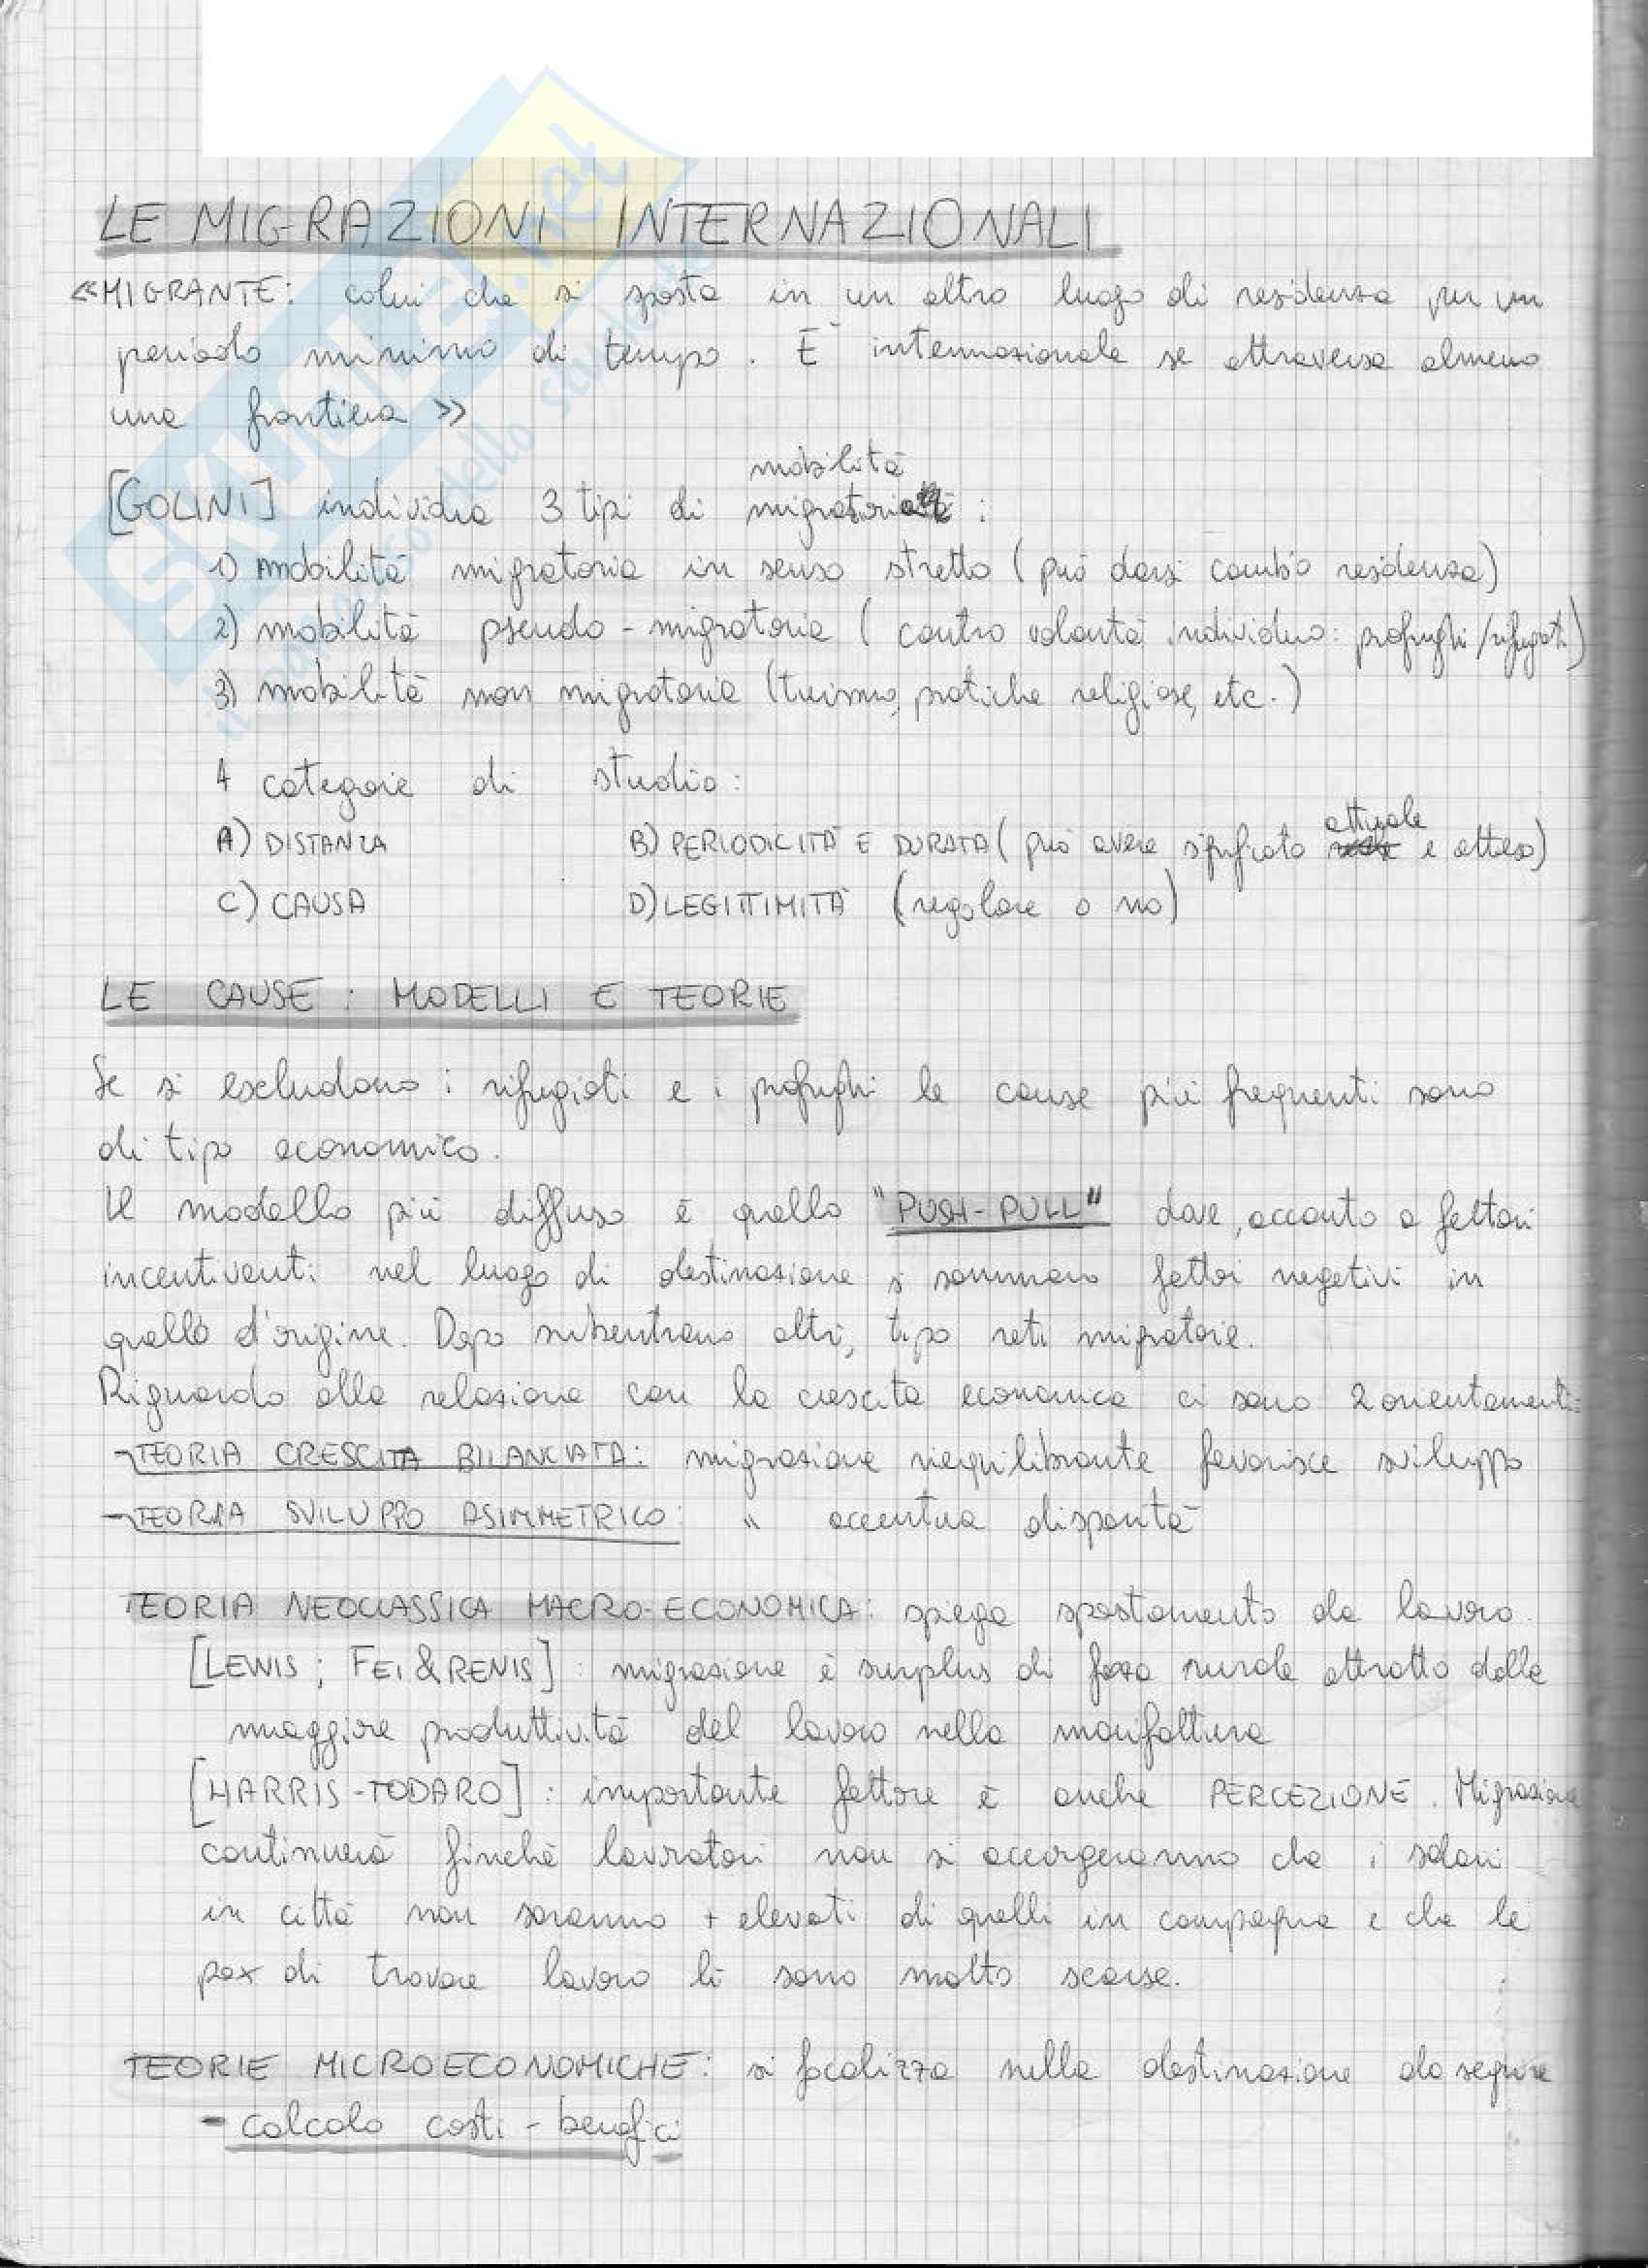 LE MIGRAZIONI INTERNAZIONALI
«MIGRANTE: colui che si sposta in un altro luogo di residenza per un
periodo minimo di tempo. È internazionale se attraversa almeno
una frontiera»
mobilità
[GOLINI] individua 3 tipi di migratoria:
1) mobilità migratoria in senso stretto (può darsi cambio residenza)
2) mobilità pseudo-migratoria (contro volontà individuo: profughi/rifugiati)
3) mobilità non migratoria (turismo, pratiche religiose, etc.)
4 categorie di studio:
attuale
A) DISTANZA B) PERIODICITÀ E DURATA (può avere significato e atteso)
C) CAUSA D) LEGITTIMITÀ (regolare o no)
LE CAUSE: MODELLI E TEORIE
Se si escludono i rifugiati e i profughi le cause più frequenti sono
di tipo economico.
Il modello più diffuso è quello "PUSH-PULL" dove, accanto a fattori
incentivanti nel luogo di destinazione si sommano fattori negativi in
quello d'origine. Dopo subentrano altri, tipo reti migratorie.
Riguardo alla relazione con la crescita economica ci sono 2 orientamenti:
- TEORIA CRESCITA BILANCIATA: migrazione riequilibrante favorisce sviluppo
- TEORIA SVILUPPO ASIMMETRICO: " accentua disparità
TEORIA NEOCLASSICA MACRO-ECONOMICA: spiega spostamento da lavoro.
[LEWIS; FEI & RENIS]: migrazione è surplus di forza rurale attratto dalla
maggiore produttività del lavoro nella manifattura
[HARRIS-TODARO]: importante fattore è anche PERCEZIONE. Migrazione
continuerà finché lavoratori non si accorgeranno che i salari
in città non saranno + elevati di quelli in campagna e che le
pox di trovare lavoro lì sono molto scarse.
TEORIE MICROECONOMICHE: si focalizza nella destinazione da seguire
- calcolo costi-benefici
SKUOLA.net